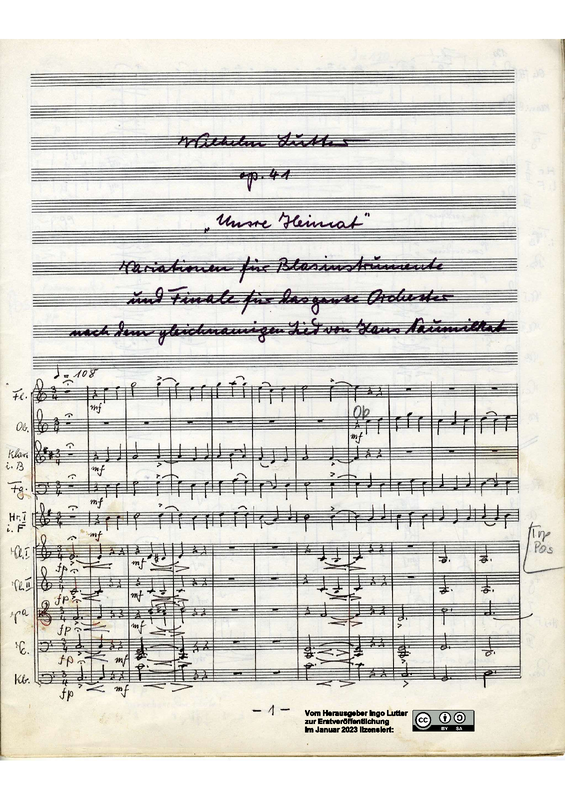 Wilhelm Lutter
op. 41
„Unsre Heimat"
Variationen für Blasinstrumente
und Finale für das ganze Orchester
nach dem gleichnamigen Lied von Hans Naumilkat
♩ = 108
Fl.
mf
Ob.
Ob
mf
Klar.
i. B
mf
Fg.
mf
Hr. I
i. F
mf
Trp
Pos
Vl. I
fp mf
Vl. II
fp mf
Va
fp mf
Vc.
fp mf
Kb.
fp mf
- 1 -
Vom Herausgeber Ingo Lutter
zur Erstveröffentlichung
im Januar 2023 lizensiert:
cc BY SA